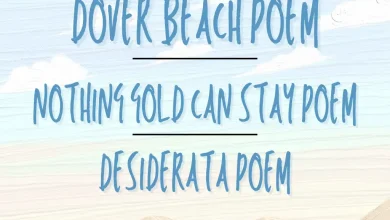 DOVER BEACH POEM
NOTHING GOLD CAN STAY POEM
DESIDERATA POEM